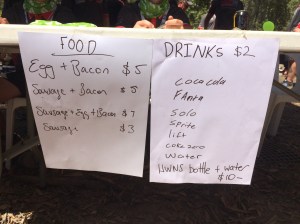 FOOD
Egg + Bacon $5
Sausage + Bacon $5
Sausage + Egg + Bacon $7
Sausage $3
DRINKS $2
coca cola
Fanta
Solo
Sprite
lift
coke zero
water
HWNS bottle + water
$10-